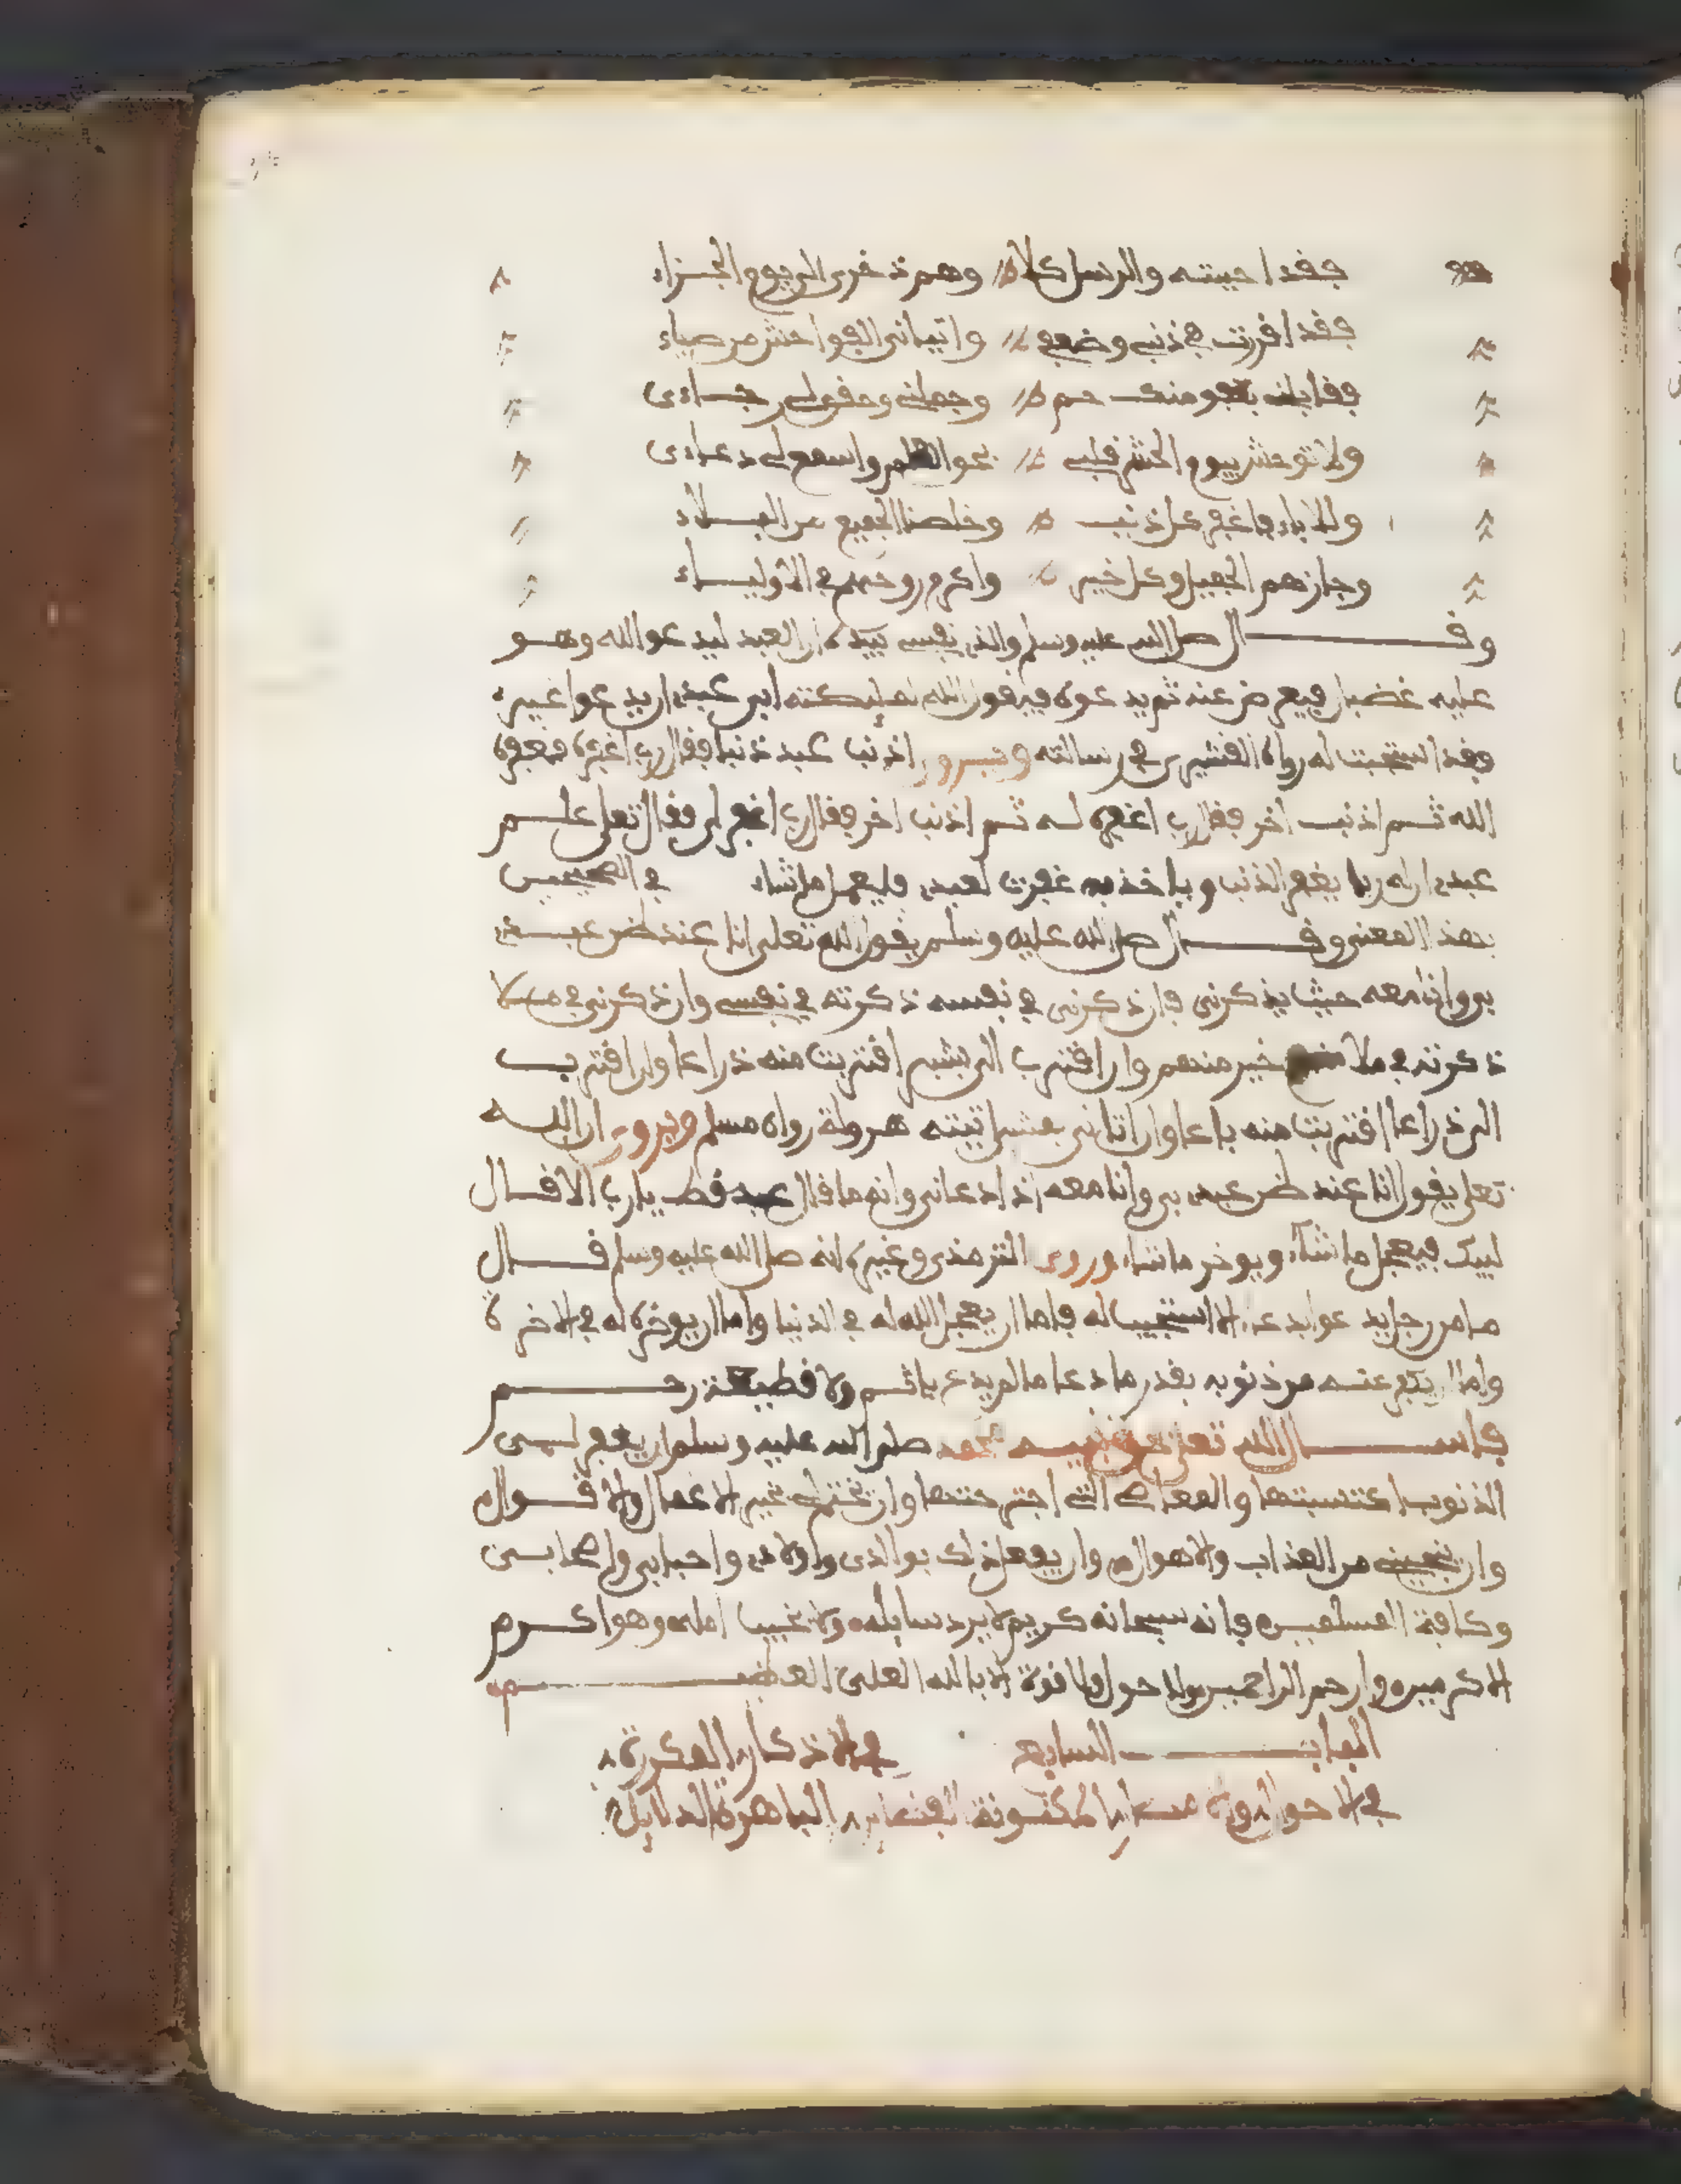 فقد احببته والرسل كلا وهم ذخرى الى يوم الجزاء
فقد اقررت في ذنبي وضعفي واتياني الفواحش من صباء
فقابلني بعفو منك
ولا توحش بيوم الحشر قلبي واسمع لي دعاءى
وللاباء فاغفر كل ذنب وخلصنا الجميع من البلاء
وجازهم الجميل وكل خير واكرم روحهم في الاولياء
وقال صلى الله عليه وسلم والذي نفسي بيده ان العبد ليدعو الله وهو
عليه غضبان فيعرض عنه ثم يدعوه فيقول الله لملىكته ابى عبدي ان يدعوا غيرى
فقد استجبت له رواه القشيرى في رسالته ويروى اذنب عبد ذنبا فقال رب اغفره فغفره
الله ثم اذنب اخر فقال رب اغفره له ثم اذنب اخر فقال رب اغفر لي فقال تعلى علم
عبدي ان له ربا يغفر الذنب وياخذ به غفرت لعبدي فليعمل ما شاء في الصحيحين
بهذا المعنى وقال صلى الله عليه وسلم يقول الله تعلى انا عند ظن عبدي
بي وانا معه حيث يذكرني فان ذكرني في نفسه ذكرته في نفسي وان ذكرني في ملا
ذكرته في ملا خير منهم وان اقترب الي بشبر اقتربت منه ذراعا وان اقترب
الي ذراعا اقتربت منه باعا وان اتاني بمشي اتيته هرولة رواه مسلم ويروى ان الله
تعلى يقول انا عند ظن عبدي بي وانا معه اذا دعاني وانه ما قال عبد قط يا رب الا قال
لبيك فيعجل ما شاء ويوخر ما شاء وروى الترمذي وغيره انه صلى الله عليه وسلم قال
ما من رجل يدعو ابدعاء الا استجيب له فاما ان يعجل الله له في الدنيا واما ان يوخره له في الاخرة
واما ان يكفر عنه من ذنوبه بقدر ما دعا ما لم يدع باثم ولا قطيعة رحم
فاسال الله تعلى بحق نبيه محمد صلى الله عليه وسلم ان يغفر لي
الذنوب اكتسبتها والمعاصي التي اجترحتها وان يختم لي بخير الاعمال والاقوال
وان ينجيني من العذاب والاهوال وان يفعل ذلك بوالدى واولادى واحبابي واصحابي
وكافة المسلمين فانه سبحانه كريم لا يرد سايله ولا يخيب امله وهو اكرم
الاكرمين وارحم الراحمين ولا حول ولا قوة الا بالله العلي العظيم
الباب السابع في الاذكار
في الاحوال الباهرة الدلايل